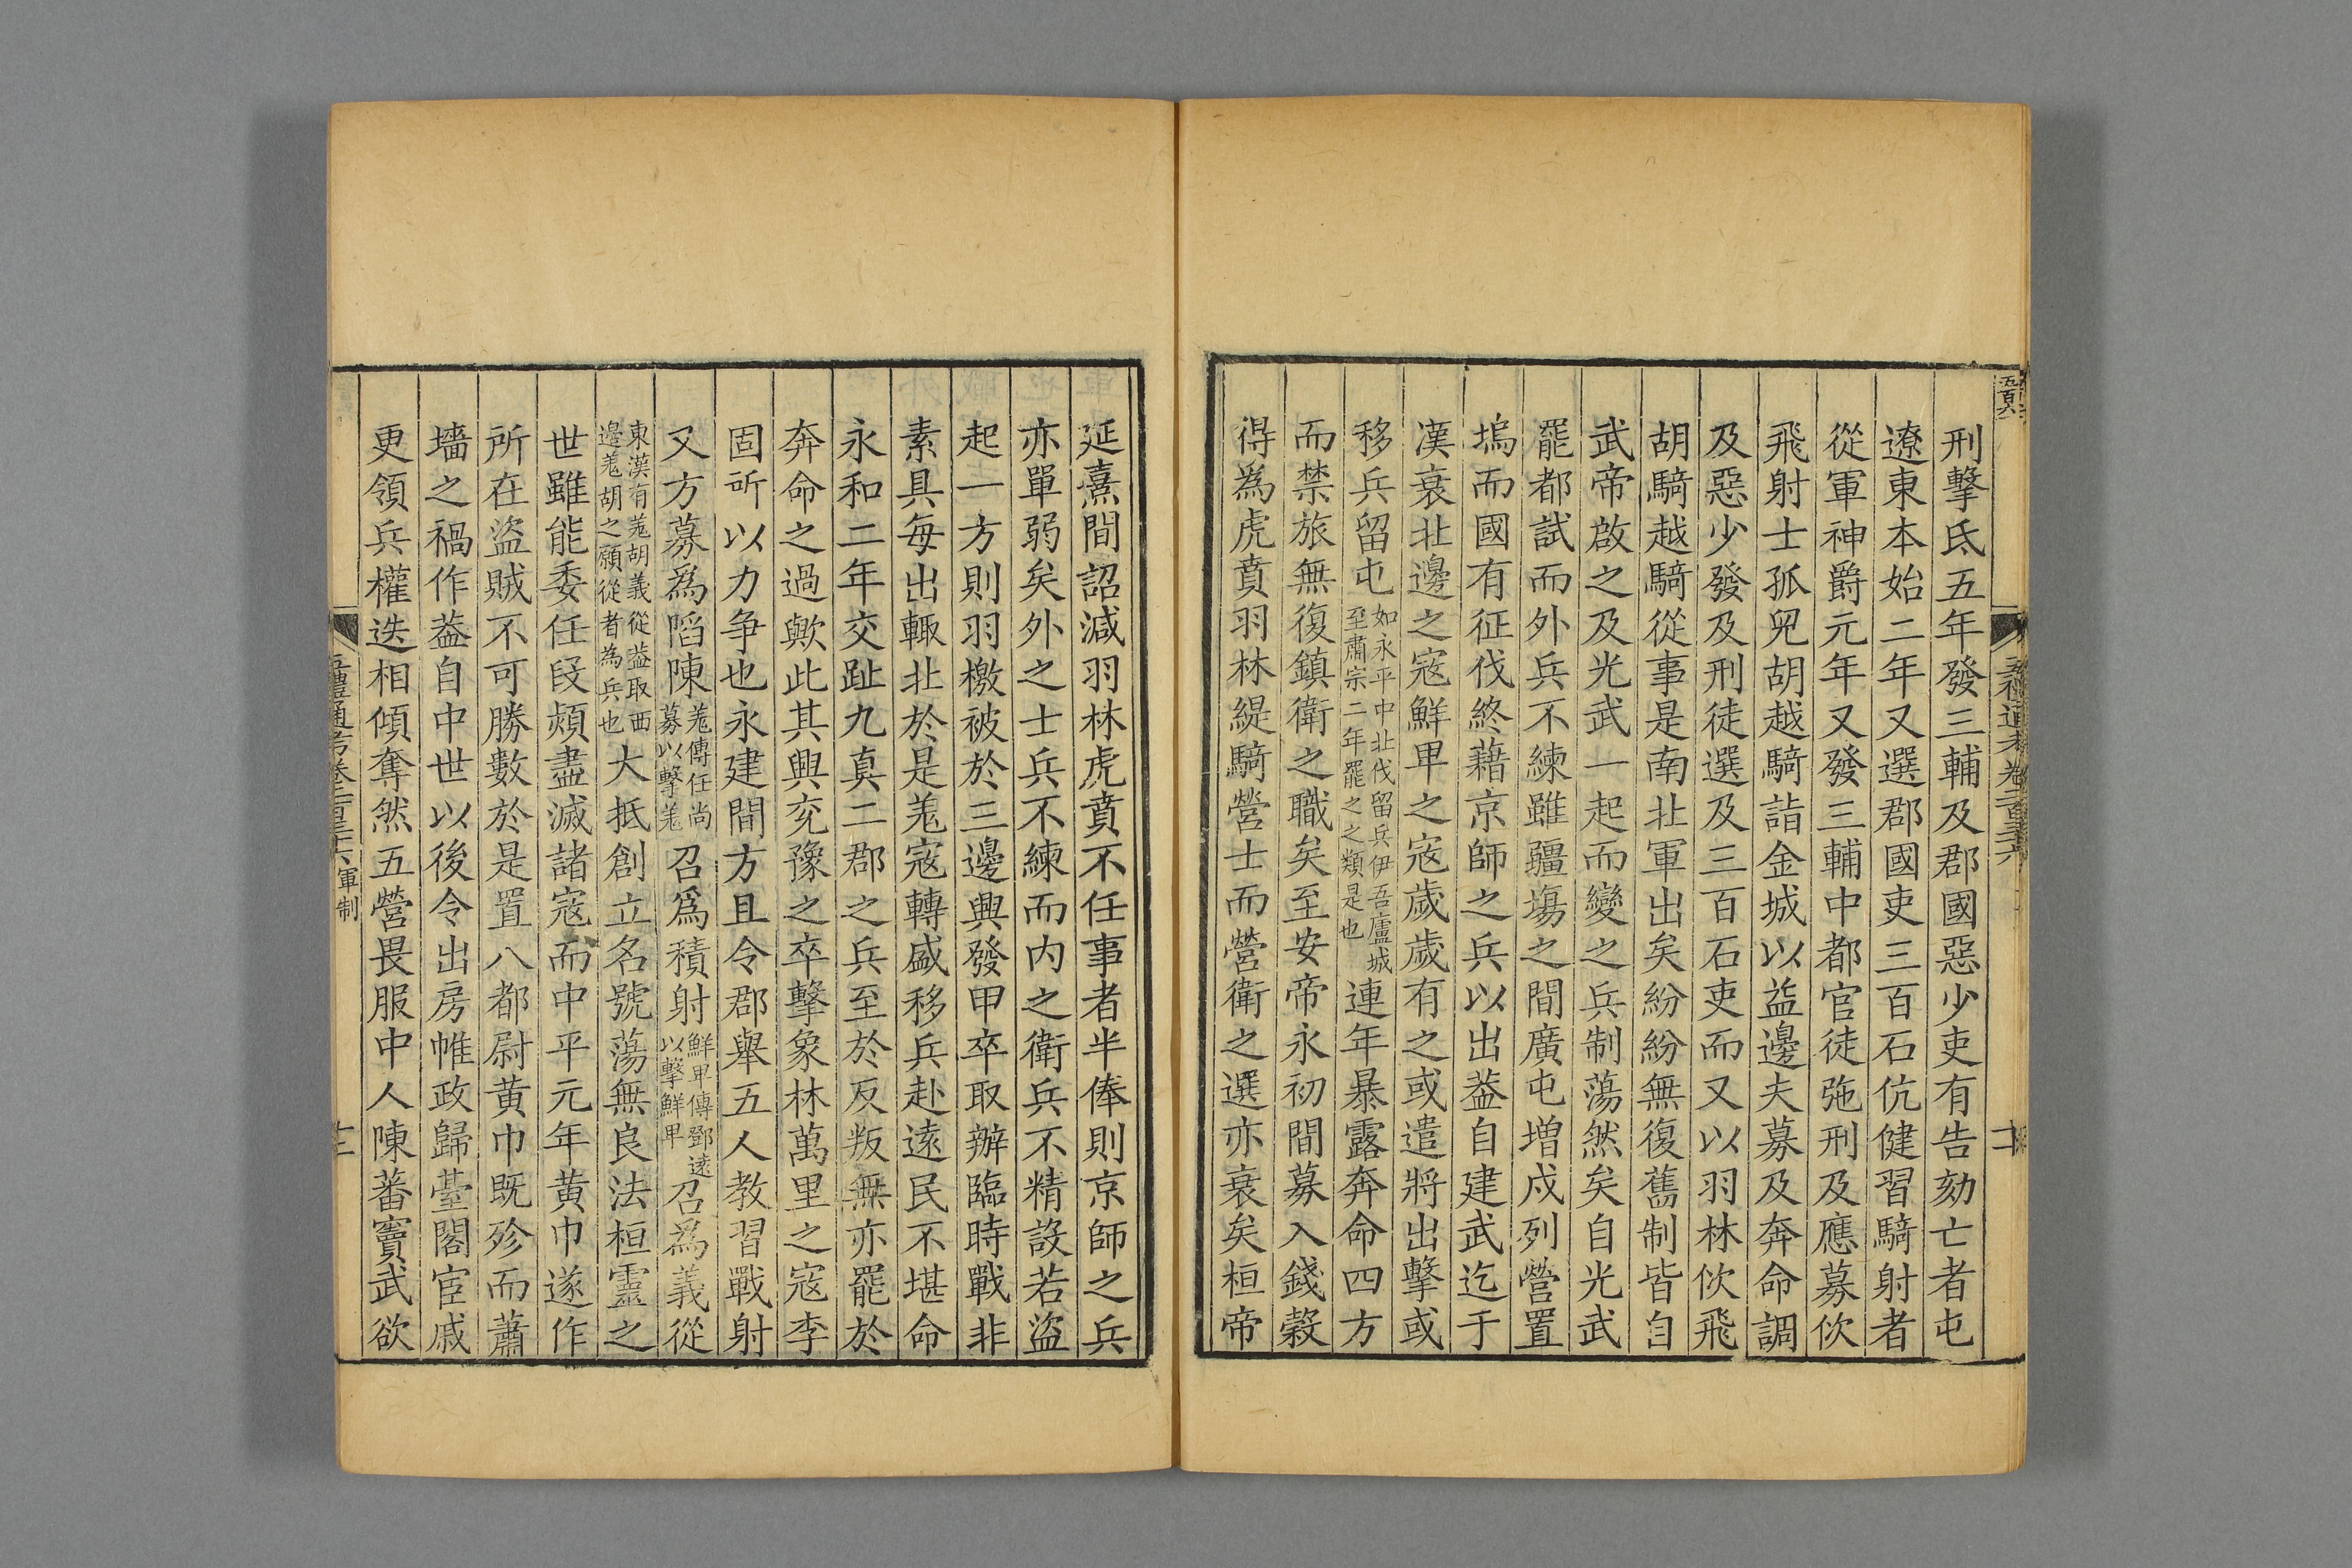 刑擊氐五年發三輔及郡國惡少吏有告劾亡者屯
遼東本始二年又選郡國吏三百石伉健習騎射者
從軍神爵元年又發三輔中都官徒弛刑及應募佽
飛射士孤兒胡越騎詣金城以益邊夫募及奔命調
及惡少發及刑徒選及三百石吏而又以羽林佽飛
胡騎越騎從事是南北軍出矣紛紛無復舊制皆自
武帝啟之及光武一起而變之兵制蕩然矣自光武
罷都試而外兵不練雖疆埸之間廣屯增戍列營置
塢而國有征伐終藉京師之兵以出葢自建武迄于
漢衰北邊之寇鮮卑之寇歲歲有之或遣將出擊或
移兵留屯如永平中北伐留兵伊吾廬城至肅宗二年罷之之類是也連年暴露奔命四方
而禁旅無復鎮衛之職矣至安帝永初間募入錢穀
得為虎賁羽林緹騎營士而營衛之選亦衰矣桓帝
延熹間詔減羽林虎賁不任事者半俸則京師之兵
亦單弱矣外之士兵不練而内之衛兵不精設若盜
起一方則羽檄被於三邊興發甲卒取辦臨時戰非
素具每出輒北於是羌寇轉盛移兵赴遠民不堪命
永和二年交趾九真二郡之兵至於反叛無亦罷於
奔命之過歟此其興兖豫之卒擊象林萬里之寇李
固所以力争也永建間方且令郡舉五人教習戰射
又方募為陷陳羌傳任尚募以擊羌召為積射鮮卑傳鄧遠以擊鮮卑召為義從
東漢有羌胡義從益取西邊羌胡之願從者為兵也大抵創立名號蕩無良法桓靈之
世雖能委任段熲盡滅諸寇而中平元年黄巾遂作
所在盜賊不可勝數於是置八都尉黄巾既殄而蕭
墻之禍作葢自中世以後令出房帷政歸臺閣宦戚
更領兵權迭相傾奪然五營畏服中人陳蕃竇武欲
五禮通考卷二百三十六軍制